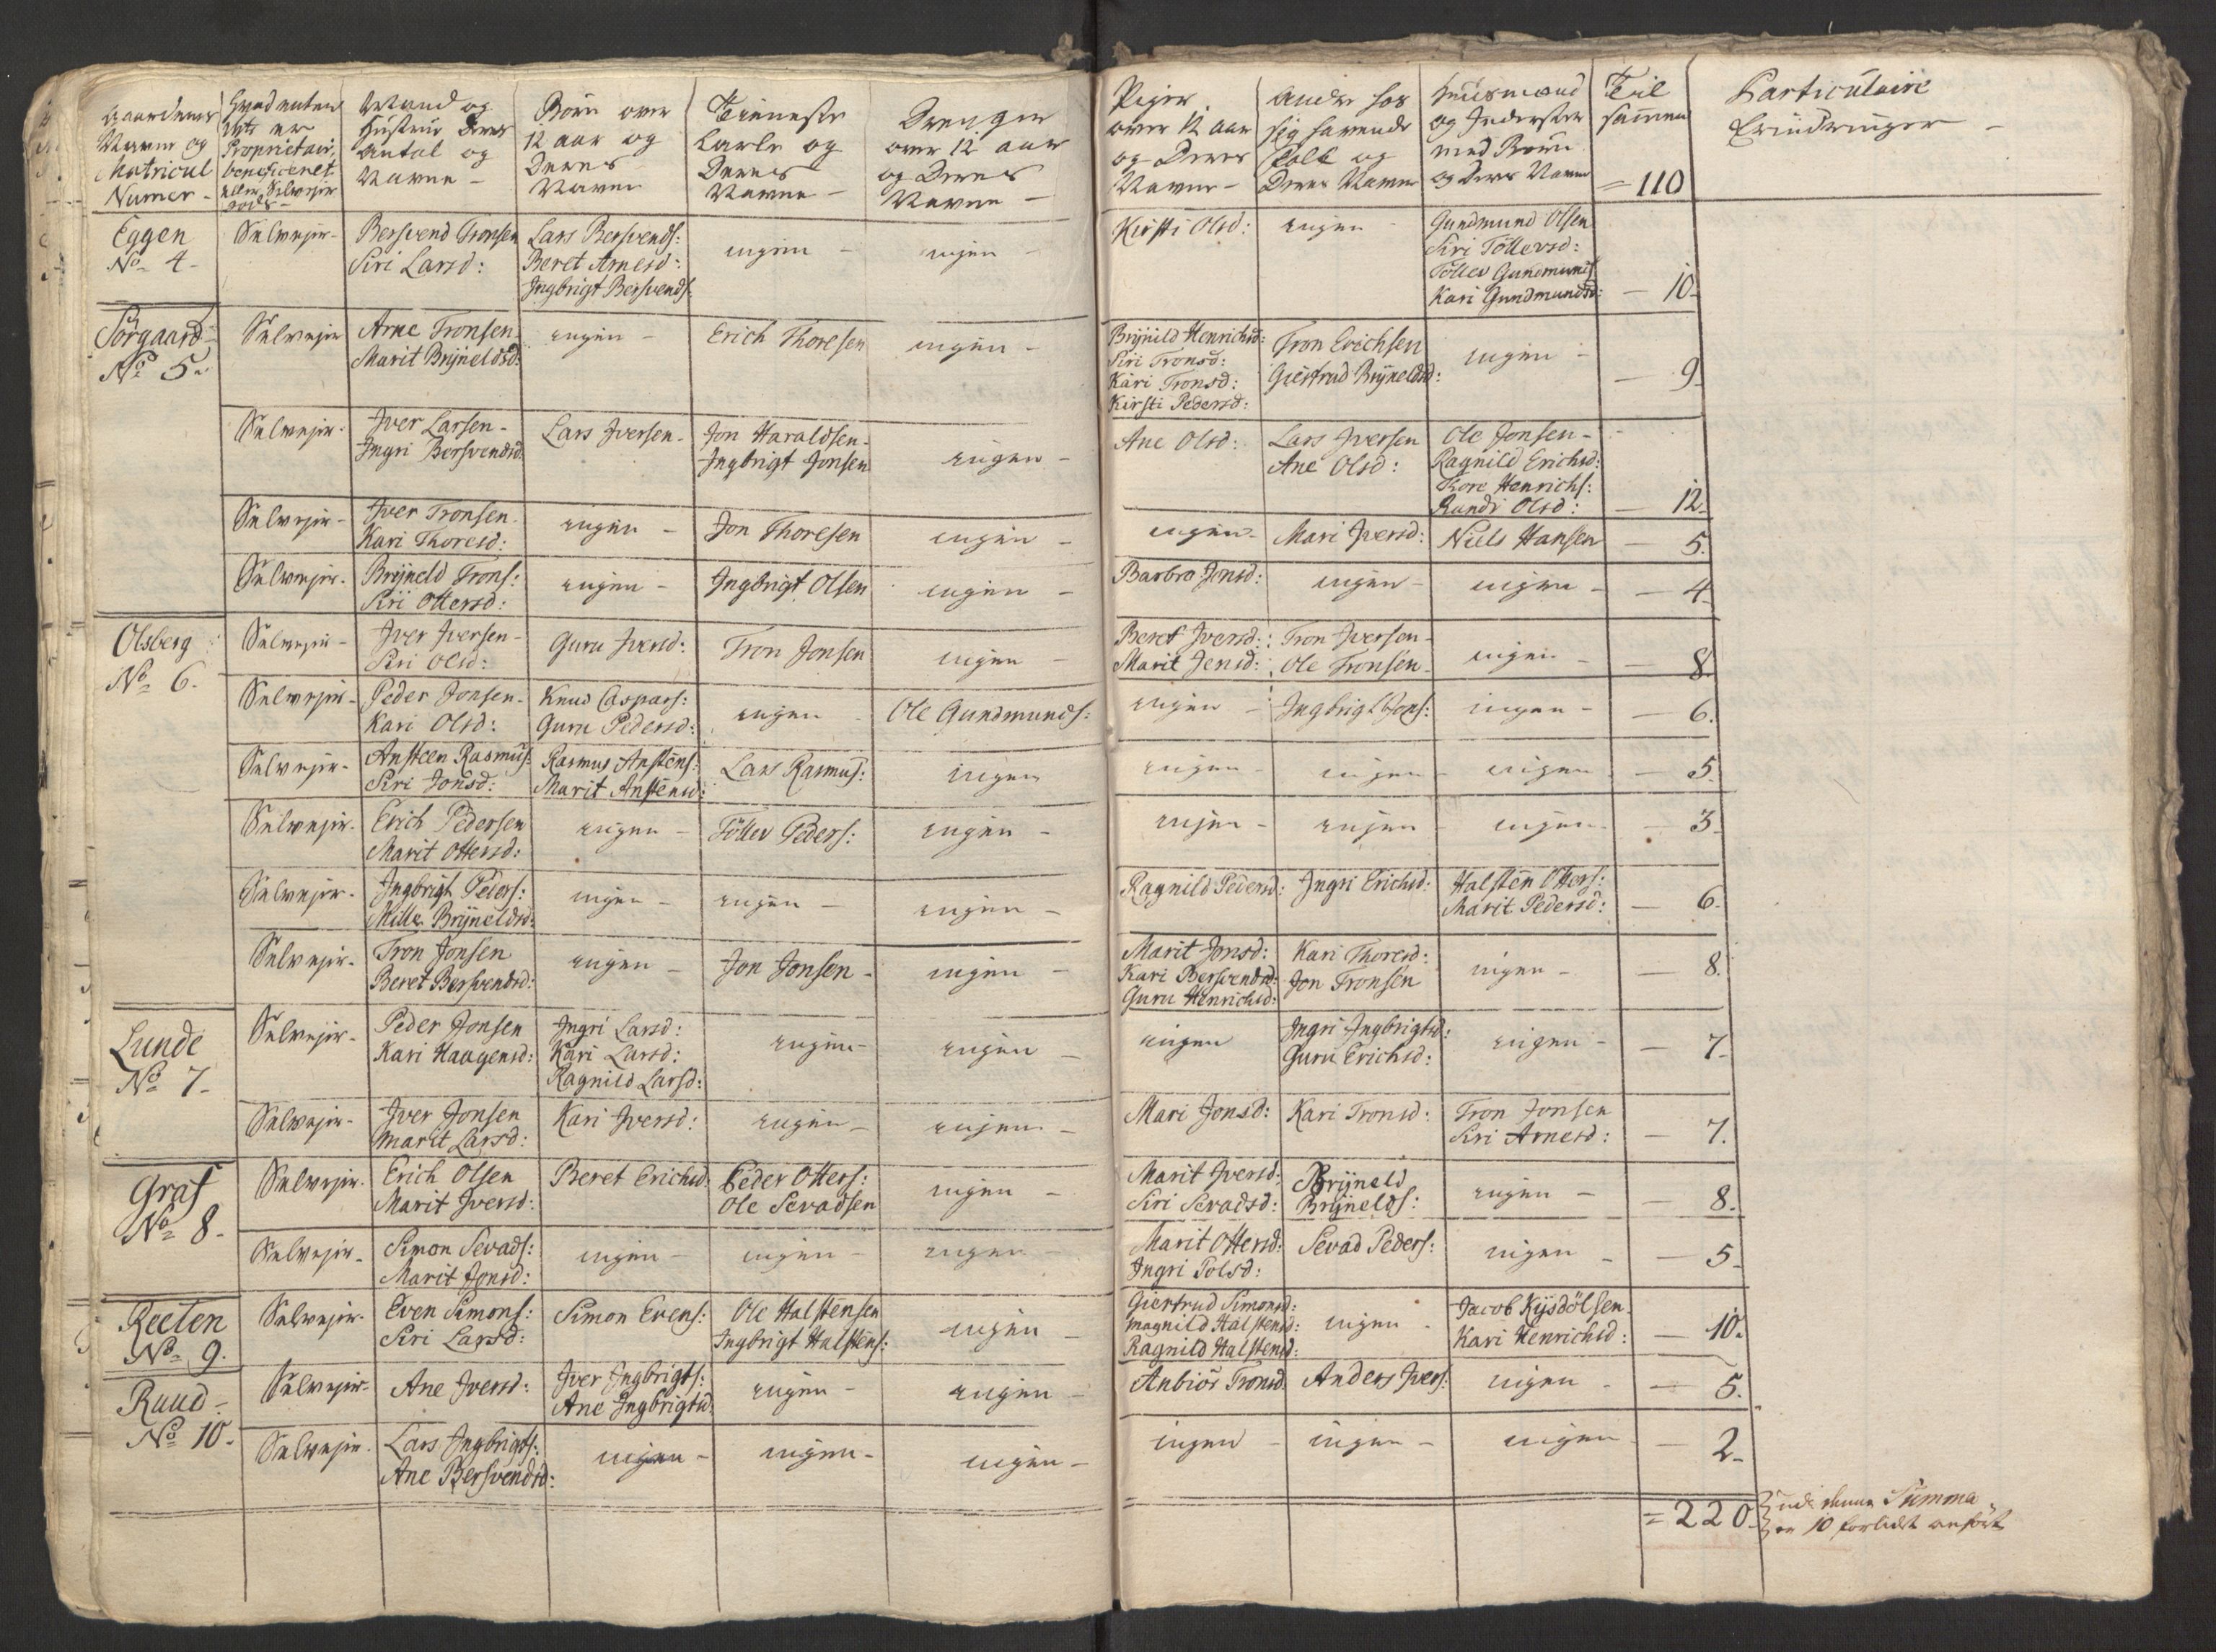 Gaardenes Navne og Matricul Numer -
Hvad enten det er Proprietair, beneficeret eller Selvejer Gods -
Mand og Hustrue Deres Antal og Navne -
Børn over 12 aar og Deres Navne
Tieneste Karle og Deres Navne -
Drenger over 12 aar og Deres Navne -
Piger over 12 aar og Deres Navne -
Andre for sig havende Folk og Deres Navne
Huusmænd og Inderster med Børn og Deres Navne
Til sammen
Particulaire Erindringer -
= 110
Eggen No 4 -
Selvejer - Bersvend Tronsen Lars Bersvends: ingen - ingen - Kirsti Olsd: ingen - Gundmund Olsen
Siri Larsd: Beret Arnesd: Siri Töllevsd:
Ingbrigt Bersvends: Töllev Gunmunds:
Kari Gundmundsd: - 10 -
Sörgaard - No 5 -
Selvejer Arne Tronsen ingen - Erich Thoresen ingen - Brÿnild Henrichsd: Tron Erichsen ingen -
Marit Brÿneldsd: Siri Tronsd: Giertrud Brÿneldsd:
Kari Tronsd: - 9 -
Kirsti Pedersd:
Selvejer - Iver Larsen - Lars Iversen - Jon Haraldsen - ingen - Ane Olsd: Lars Iversen Ole Jonsen -
Ingri Bersvendsd: Ingbrigt Jonsen Ane Olsd: Ragnild Erichsd:
Thore Henrichs:
Randi Olsd: - 12 -
Selvejer - Iver Tronsen - ingen - Jon Thoresen ingen - ingen - Mari Iversd: Niels Hansen - 5.
Kari Thoresd:
Selvejer - Brÿneld Trons: ingen - Ingbrigt Olsen ingen - Barbro Jonsd: ingen - ingen - - 4 -
Siri Ottersd:
Olsberg No 6 -
Selvejer - Iver Iversen - Guru Iversd: Tron Jonsen ingen - Beret Iversd: Tron Iversen - ingen - - 8.
Siri Olsd: Marit Jensd: Ole Tronsen -
Selvejer - Peder Jonsen - Knud Caspars: ingen - Ole Gundmunds: ingen - Ingbrigt Jons: ingen - - 6.
Kari Olsd: Guru Pedersd:
Selvejer - Ansteen Rasmus: Rasmus Anstens: Lars Rasmus: ingen ingen - ingen - ingen - 5 -
Siri Jonsd: Marit Anstensd:
Selvejer - Erich Pedersen ingen - Töllev Peders: ingen - ingen - ingen - ingen - - 3 -
Marit Ottersd:
Selvejer - Ingbrigt Peders: ingen - ingen - ingen - Ragnild Pedersd: Ingri Erichsd: Halsten Otters:
Mille Brÿneldsd: Marit Pedersd: - 6.
Selvejer - Tron Jonsen ingen - Jon Jonsen - ingen - Marit Jonsd: Kari Thoresd: ingen - - 8.
Beret Bersvendsd: Kari Bersvendsd: Jon Tronsen
Guru Henrichsd:
Lunde No 7 -
Selvejer - Peder Jonsen Ingri Larsd: ingen - ingen - ingen Ingri Ingbrigtsd: ingen - - 7 -
Kari Haagensd: Kari Larsd: Guru Erichsd:
Ragnild Larsd:
Selvejer - Iver Jonsen Kari Iversd: ingen - ingen - Mari Jonsd: Kari Tronsd: Tron Jonsen
Marit Larsd: Siri Arnesd: - 7.
Graf No 8 -
Selvejer - Erich Olsen Beret Erichsd: Peder Otters: ingen - Marit Iversd: Brÿneld ingen - - 8.
Marit Iversd: Ole Sevadsen Siri Sevadsd: Brÿnelds:
Selvejer - Simon Sevads: ingen - ingen - ingen - Marit Ottersd: Sevad Peders: ingen - - 5 -
Marit Jonsd: Ingri Polsd:
Reeten No 9.
Selvejer - Even Simons: Simon Evens: Ole Halstensen ingen - Giertrud Simonsd: ingen - Jacob Kÿsdölsen
Siri Larsd: Ingbrigt Halstens: Magnild Halstensd: Kari Henrichsd: - 10.
Ragnild Halstensd:
Ruud - No 10 -
Selvejer - Ane Iversd: Iver Ingbrigts: ingen - ingen - Anbiör Tronsd: Anders Ivers: ingen - - 5.
Ane Ingbrigtsd:
Selvejer - Lars Ingbrigts: ingen - ingen - ingen - ingen - ingen - ingen - 2 -
Ane Bersvendsd:
= 220. udi denne Summa
er 10 forlidet anfört